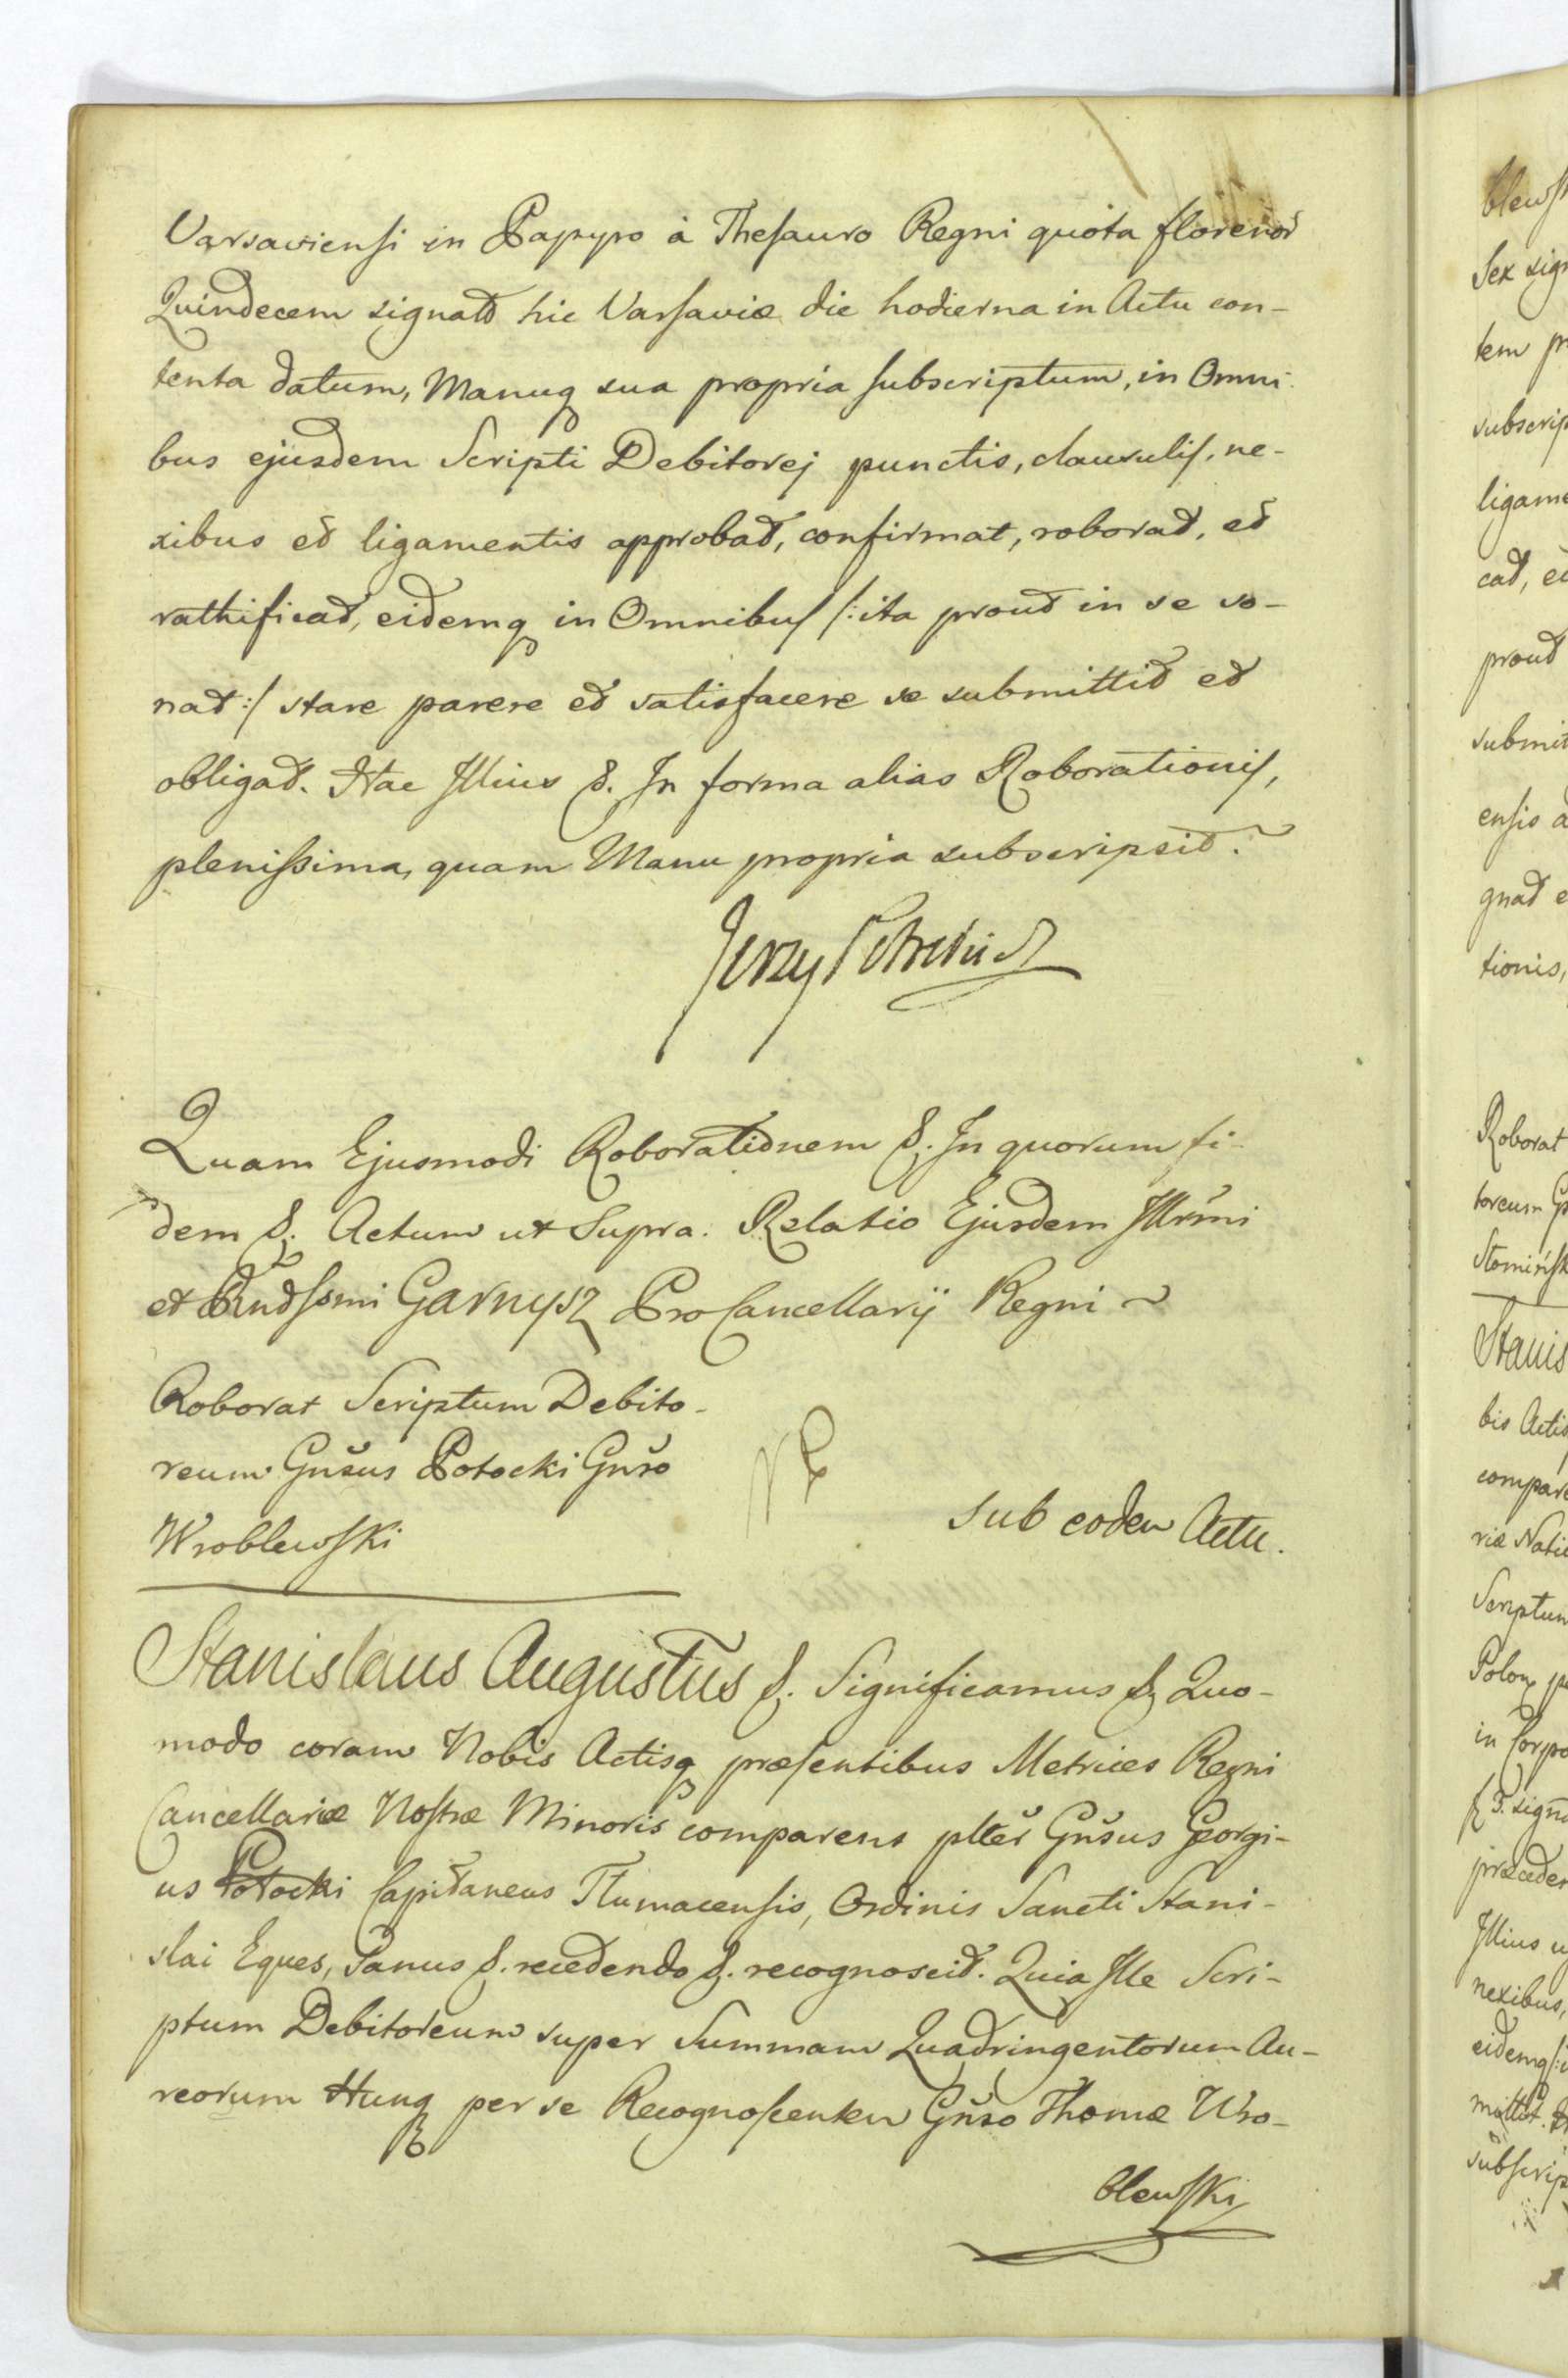 Varsaviensi in Papyro à Thesauro Regni quota florenor
Quindecem signat hic Varsaviæ die hodierna in Actu con-
tenta datum, Manuq sua propria subscriptum, in Omni-
bus ejusdem Scripti Debitorej punctis, clausulis, ne-
xibus et ligamentis approbat, confirmat, roborat, et
rathificat, eidemq in Omnibus /: ita prout in se so-
nat :/ stare parere et satisfacere se submittit et
obligat. Hac Illius &. In forma alias Roborationis,
plenissima, quam Manu propria subscripsit.
Jerzy
Quam Ejusmodi Roborationem &. In quorum fi-
dem &. Actum ut Supra. Relatio Ejusdem Illrmi
et Rndssmi Garnysz ProCancellarij Regni ~
Roborat Scriptum Debito-
reum Gnsus Potocki Gnso
Wroblewski
Sub eodem Actu.
Stanislaus Augustus &. Significamus & Quo-
modo coram Nobis Actisq præsentibus Metrices Regni
Cancellariæ Nostræ Minoris comparens plter Gnsus Georgi-
us Potocki Capitaneus Tłumacensis, Ordinis Sancti Stani-
slai Eques, Sanus &. recedendo &. recognoscit. Quia Ille Scri-
ptum Debitoreum super Summam Quadringentorum Au-
reorum Hung per se Recognoscentem Gnso Thomæ Wro-
blewski
blewsk
Sex sign
tem pr
subscrip
ligame
cat, ei
prout
submit
ensis a
gnat e
tionis,
Roborat
toreum G
Stanis
bis Actis
compare
riæ Natio
Scriptum
Polon
in Corpo
præceden
Illius
nexibus,
eidemq /:
mittit
subscrip